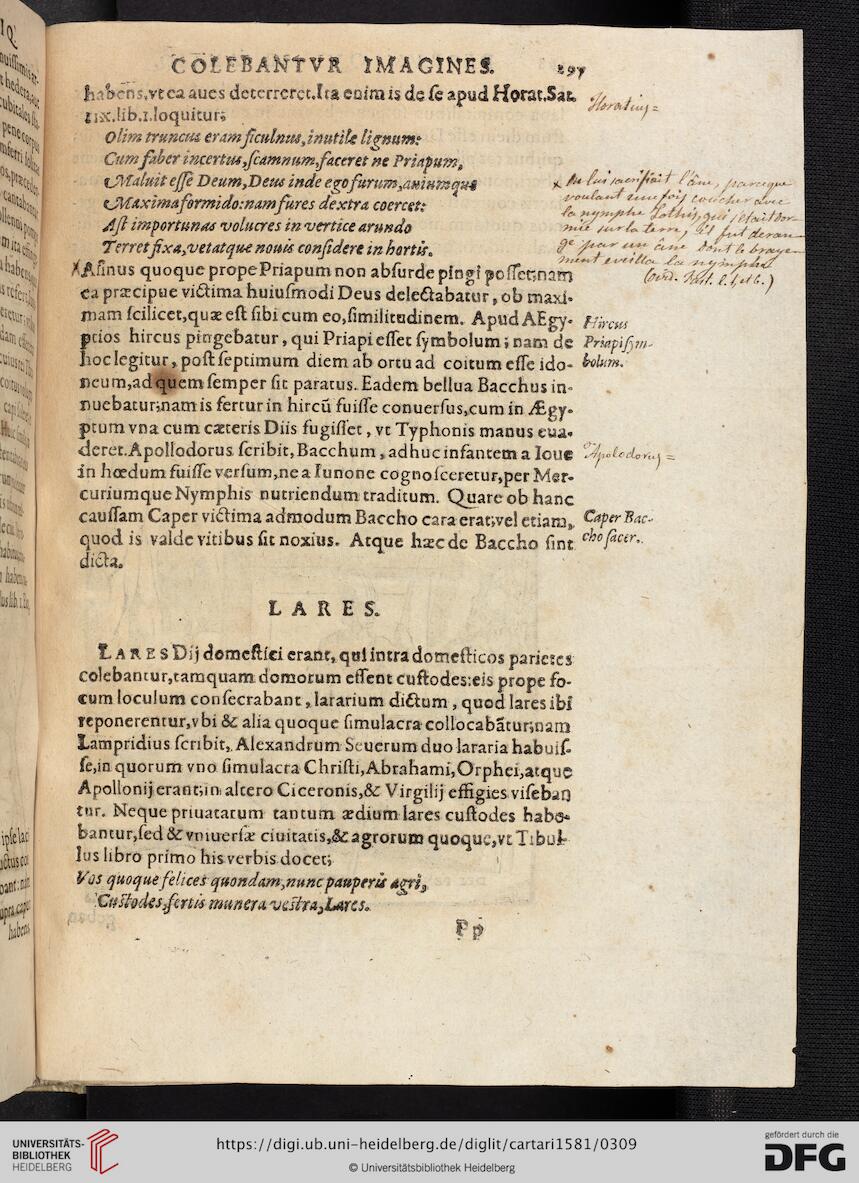 COLEBANTVR IMAGINES. 297
habens, vt ea aues deterreret. Ita enim is de se apud Horat. Sat.
iix. lib. 1. loquitur;
Olim truncus eram ficulnus, inutile lignum:
Cum faber incertus, scamnum, faceret ne Priapum,
Maluit esse Deum, Deus inde ego furum, auiumque
Maxima formido: nam fures dextra coercet:
Ast importunas volucres in vertice arundo
Terret fixa, vetatque nouis considere in hortis.
Asinus quoque prope Priapum non absurde pingi posset; nam
ea præcipue victima huiusmodi Deus delectabatur, ob maxi-
mam scilicet, quæ est sibi cum eo, similitudinem. Apud AEgy-
ptios hircus pingebatur, qui Priapi esset symbolum; nam de
hoc legitur, post septimum diem ab ortu ad coitum esse ido-
neum, ad quem semper sit paratus. Eadem bellua Bacchus in-
nuebatur; nam is fertur in hircū fuisse conuersus, cum in Ægy-
ptum vna cum cæteris Diis fugisset, vt Typhonis manus eua-
deret. Apollodorus scribit, Bacchum, adhuc infantem a Ioue
in hœdum fuisse versum, ne a Iunone cognosceretur, per Mer-
curiumque Nymphis nutriendum traditum. Quare ob hanc
caussam Caper victima admodum Baccho cara erat; vel etiam,
quod is valde vitibus sit noxius. Atque hæc de Baccho sint
dicta.
Horatius =
x On lui sacrifiait l'âne, parceque
voulant une fois coucher avec
la nymphe Lothis, qui s'était dor-
mie sur la terre, il fut deran-
gé par un âne dont le braye-
ment eveilla la nymphe
(ovid. Fast. l. 1 et 6.)
Hircus
Priapi sym-
bolum.
Apolodorus =
Caper Bac-
cho sacer.
LARES.
LARES Dij domestici erant, qui intra domesticos parietes
colebantur, tamquam domorum essent custodes: eis prope fo-
cum loculum consecrabant, lararium dictum, quod lares ibi
reponerentur, vbi & alia quoque simulacra collocabātur; nam
Lampridius scribit, Alexandrum Seuerum duo lararia habuis-
se, in quorum vno simulacra Christi, Abrahami, Orphei, atque
Apollonij erant; in altero Ciceronis, & Virgilij effigies viseban
tur. Neque priuatarum tantum ædium lares custodes habe-
bantur, sed & vniuersæ ciuitatis, & agrorum quoque, vt Tibul-
lus libro primo his verbis docet;
Vos quoque felices quondam, nunc pauperis agri,
Custodes, fertis munera vestra, Lares.
Pp
UNIVERSITÄTS-
BIBLIOTHEK
HEIDELBERG
https://digi.ub.uni-heidelberg.de/diglit/cartari1581/0309
© Universitätsbibliothek Heidelberg
gefördert durch die
DFG